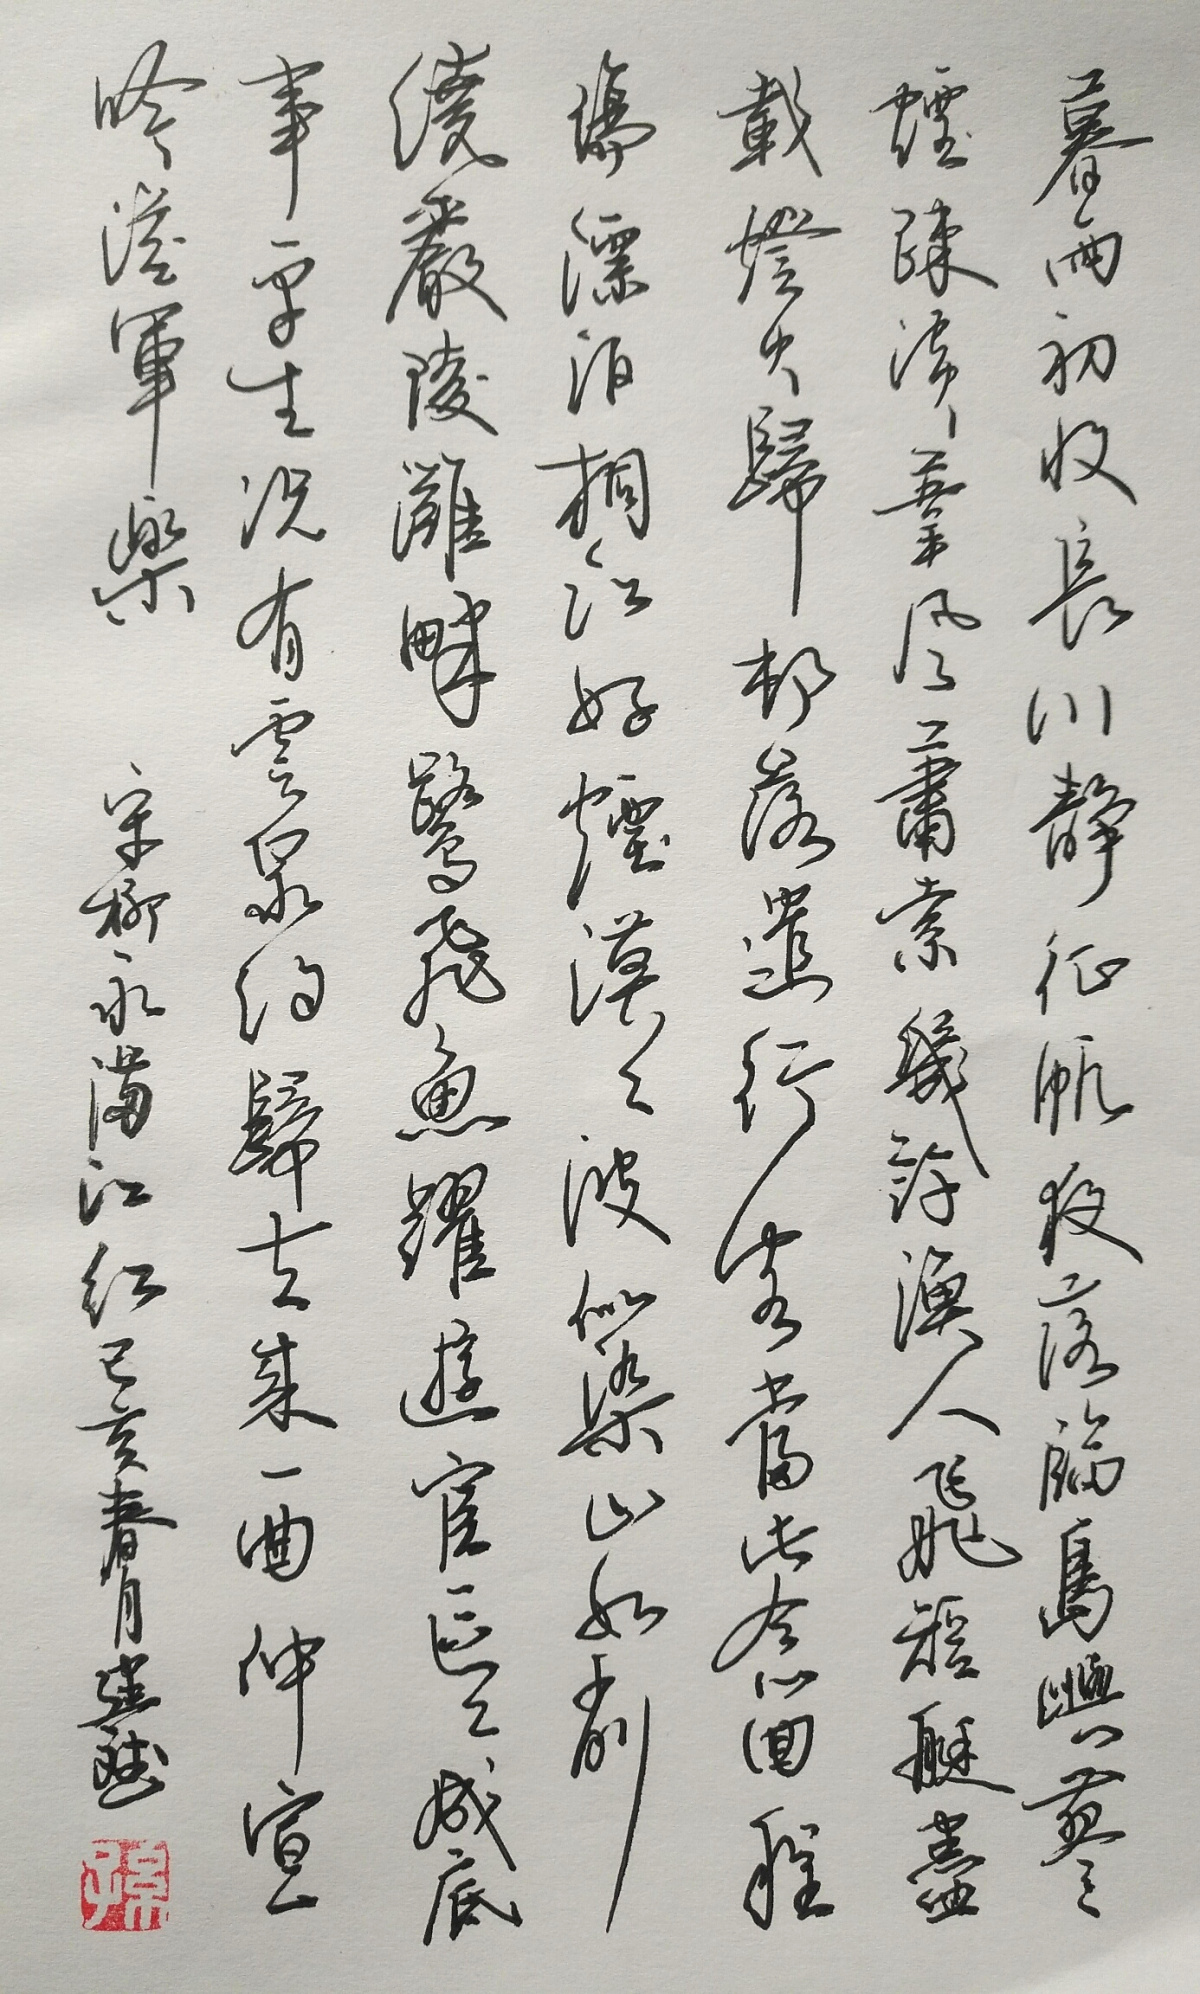 暮雨初收長川靜征帆夜落臨島嶼蓼
煙疎葦風蕭索幾許漁人飛短艇盡
載燈火歸邨落遣行客當此念回程
傷漂泊桐江好煙漠々波似染山如削
繞嚴陵灘畔鷺飛魚躍遊宦區々成底
事平生況有雲泉約歸去來一曲仲宣
吟從軍樂 宋柳永滿江紅己亥春月建斌
孫